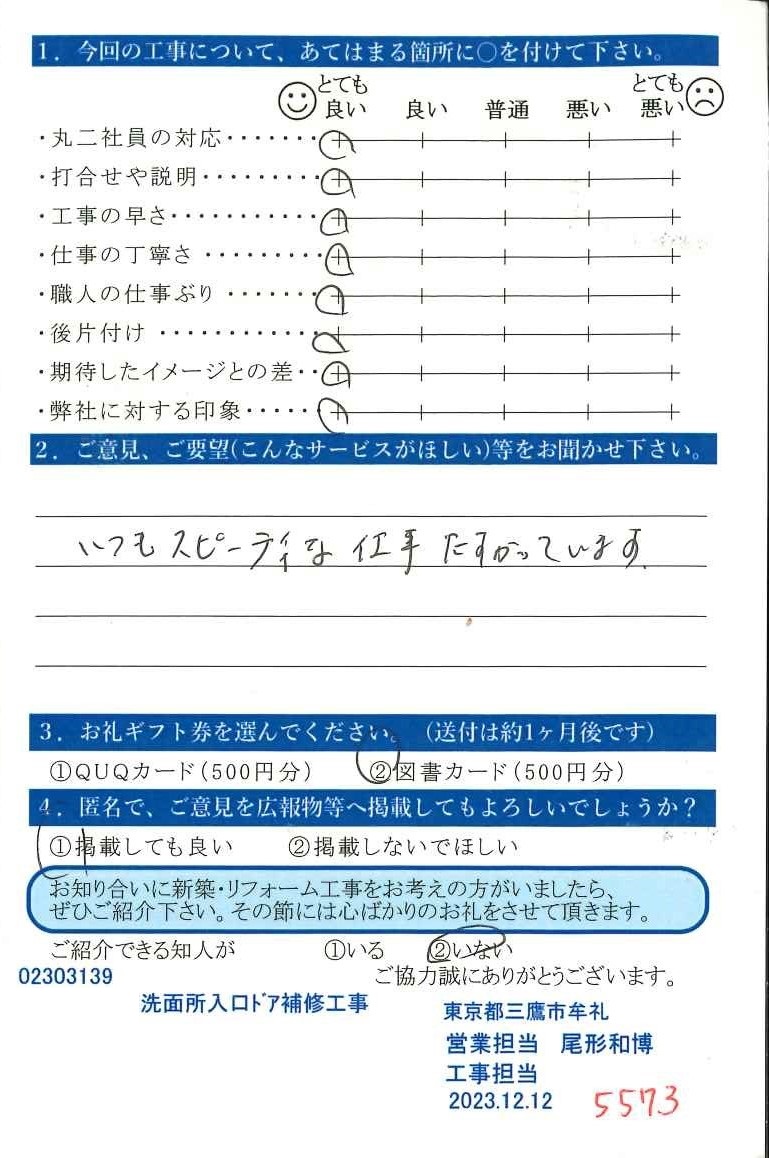 1. 今回の工事について、あてはまる箇所に○を付けて下さい。
とても良い 良い 普通 悪い とても悪い
・丸二社員の対応・・・・・・・
・打合せや説明・・・・・・・・・
・工事の早さ・・・・・・・・・・・
・仕事の丁寧さ ・・・・・・・・・
・職人の仕事ぶり ・・・・・・・
・後片付け ・・・・・・・・・・・・
・期待したイメージとの差・・
・弊社に対する印象・・・・・・
2. ご意見、ご要望(こんなサービスがほしい)等をお聞かせ下さい。
いつもスピーディな仕事 たすかっています.
3. お礼ギフト券を選んでください。 (送付は約1ヶ月後です)
①QUQカード(500円分) ②図書カード(500円分)
4. 匿名で、ご意見を広報物等へ掲載してもよろしいでしょうか?
①掲載しても良い ②掲載しないでほしい
お知り合いに新築・リフォーム工事をお考えの方がいましたら、
ぜひご紹介下さい。その節には心ばかりのお礼をさせて頂きます。
ご紹介できる知人が ①いる ②いない
02303139 ご協力誠にありがとうございます。
洗面所入口ﾄﾞｱ補修工事 東京都三鷹市牟礼
営業担当 尾形和博
工事担当
2023.12.12 5573